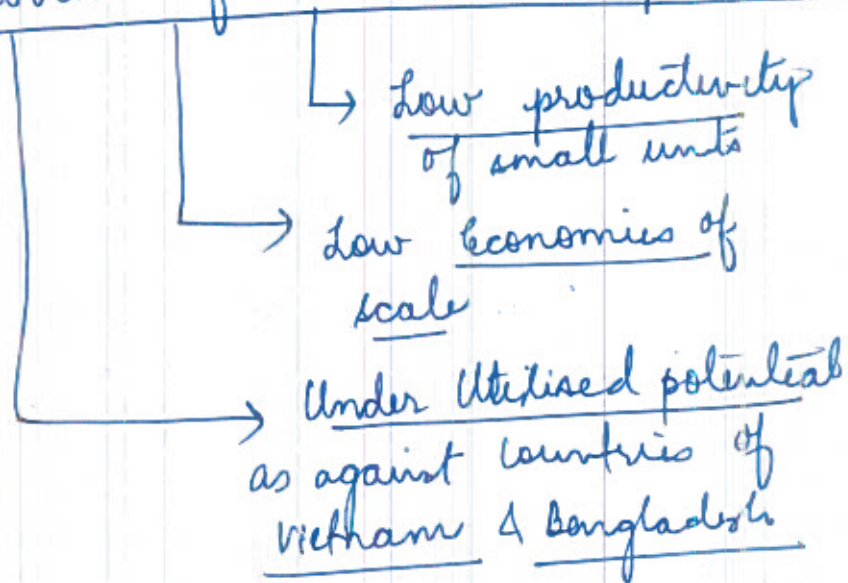 Low productivity
of small units
Low Economies of
scale
Under Utilised potential
as against countries of
Vietnam & Bangladesh